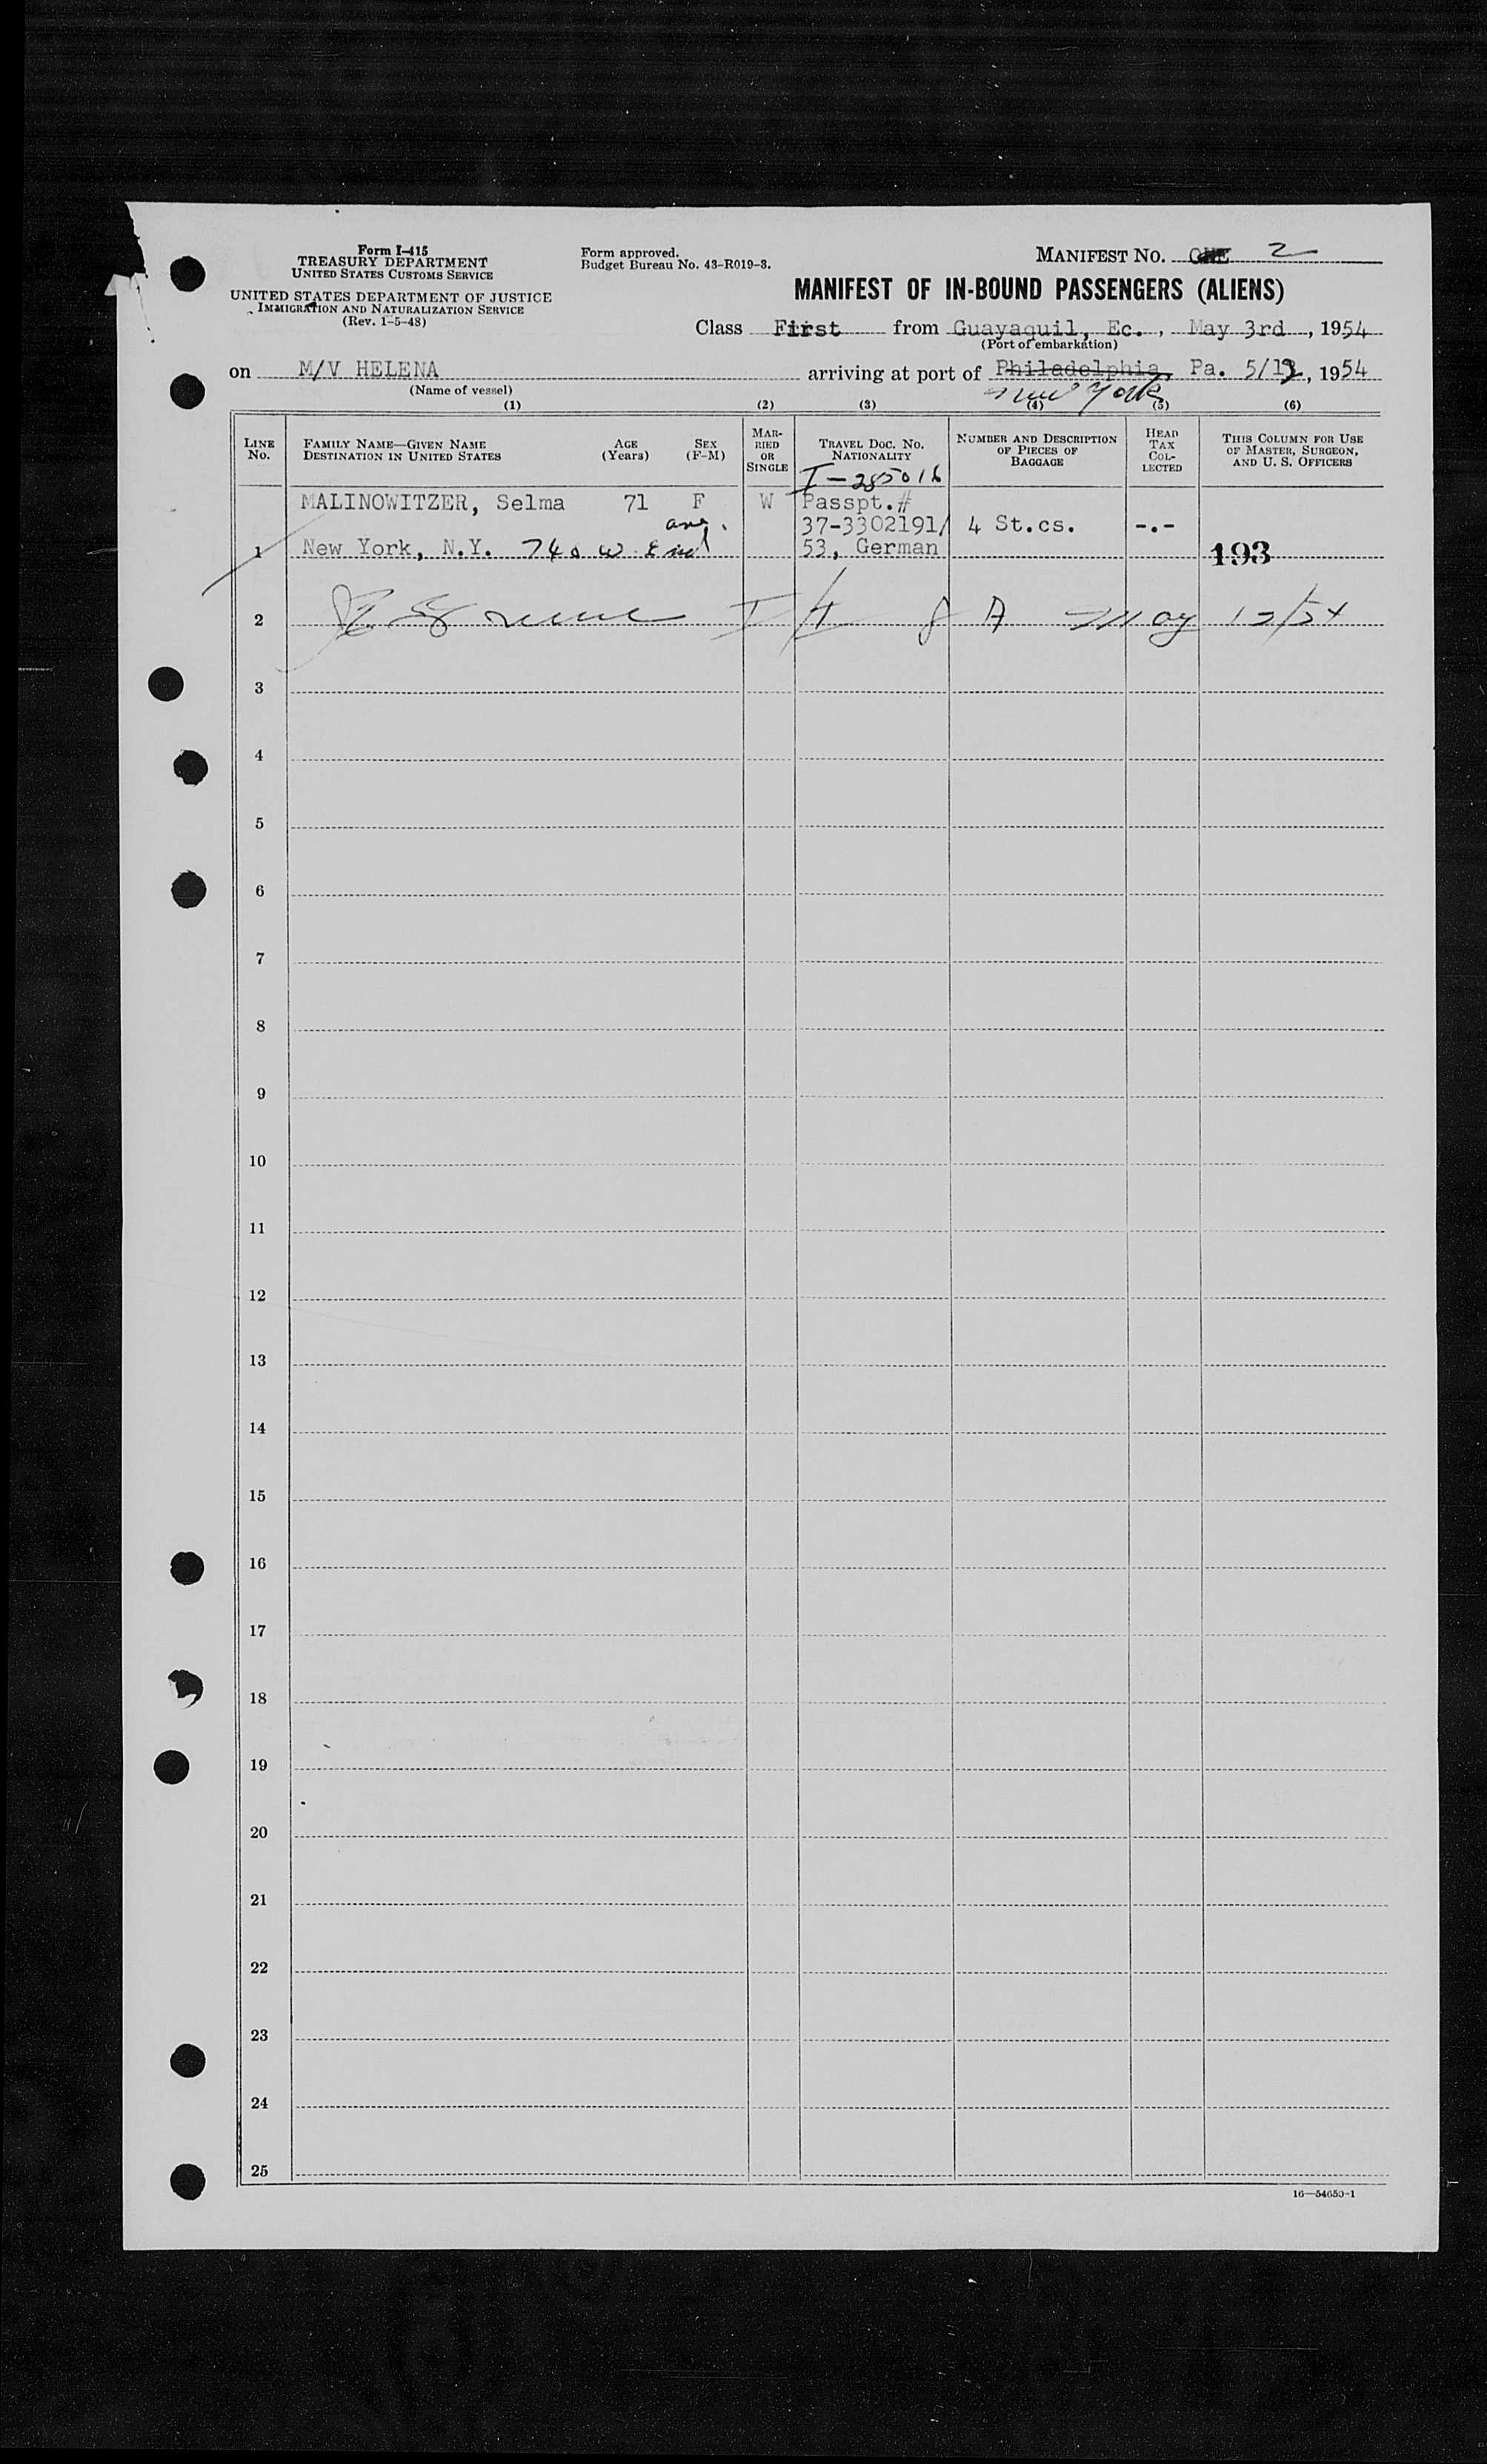 Form I-415
TREASURY DEPARTMENT
UNITED STATES CUSTOMS SERVICE
UNITED STATES DEPARTMENT OF JUSTICE
IMMIGRATION AND NATURALIZATION SERVICE
(Rev. 1-5-48)
Form approved.
Budget Bureau No. 43-R019-3.
MANIFEST NO. ONE 2
MANIFEST OF IN-BOUND PASSENGERS (ALIENS)
Class First from Guayaquil, Ec., May 3rd, 1954
(Port of embarkation)
on M/V HELENA arriving at port of Philadelphia, Pa. 5/12, 1954
(Name of vessel) New York
(1) (2) (3) (4) (5) (6)
LINE No.
FAMILY NAME—GIVEN NAME
DESTINATION IN UNITED STATES
AGE (Years)
SEX (F-M)
MARRIED OR SINGLE
TRAVEL DOC. NO.
NATIONALITY
NUMBER AND DESCRIPTION
OF PIECES OF
BAGGAGE
HEAD TAX COLLECTED
THIS COLUMN FOR USE
OF MASTER, SURGEON,
AND U. S. OFFICERS
I-285016
MALINOWITZER, Selma 71 F W Passpt.#
ave. 37-3302191/ 4 St.cs. -.-
1 New York, N.Y. 740 W. End 53, German 193
2 May 12/54
3
4
5
6
7
8
9
10
11
12
13
14
15
16
17
18
19
20
21
22
23
24
25
16—54650-1